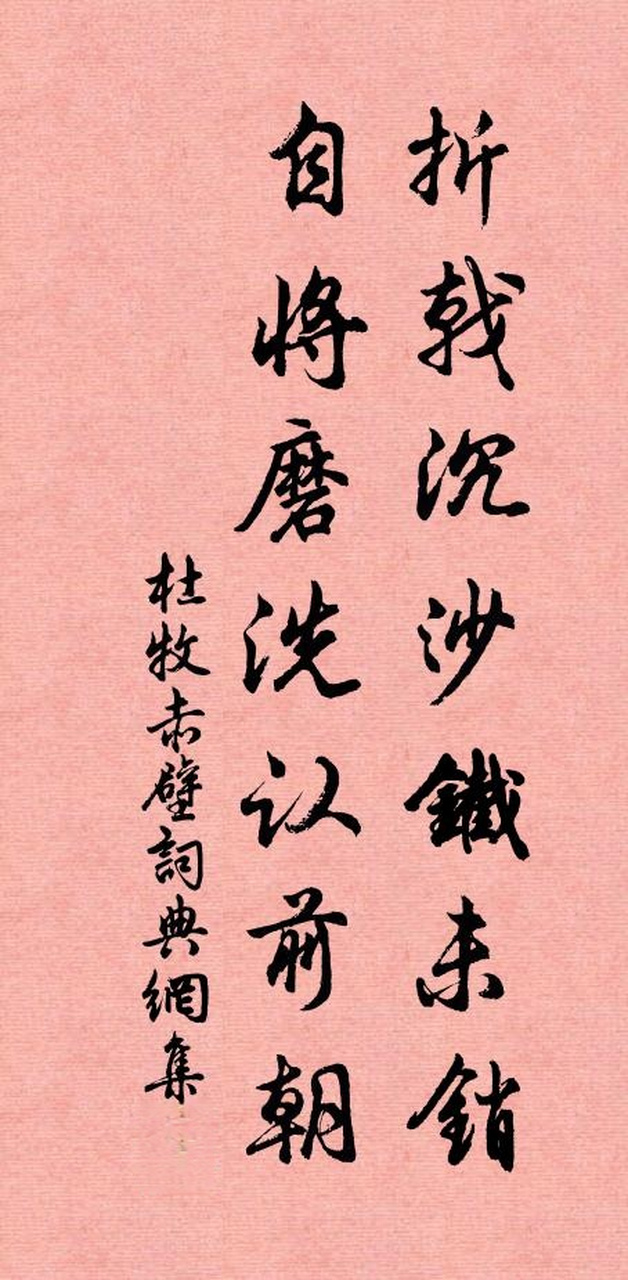 折戟沉沙鐵未銷
自將磨洗认前朝
杜牧赤壁詞典網集